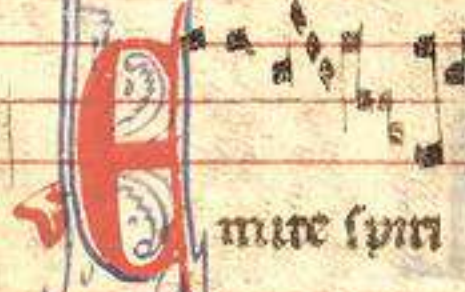 Emitte spiri